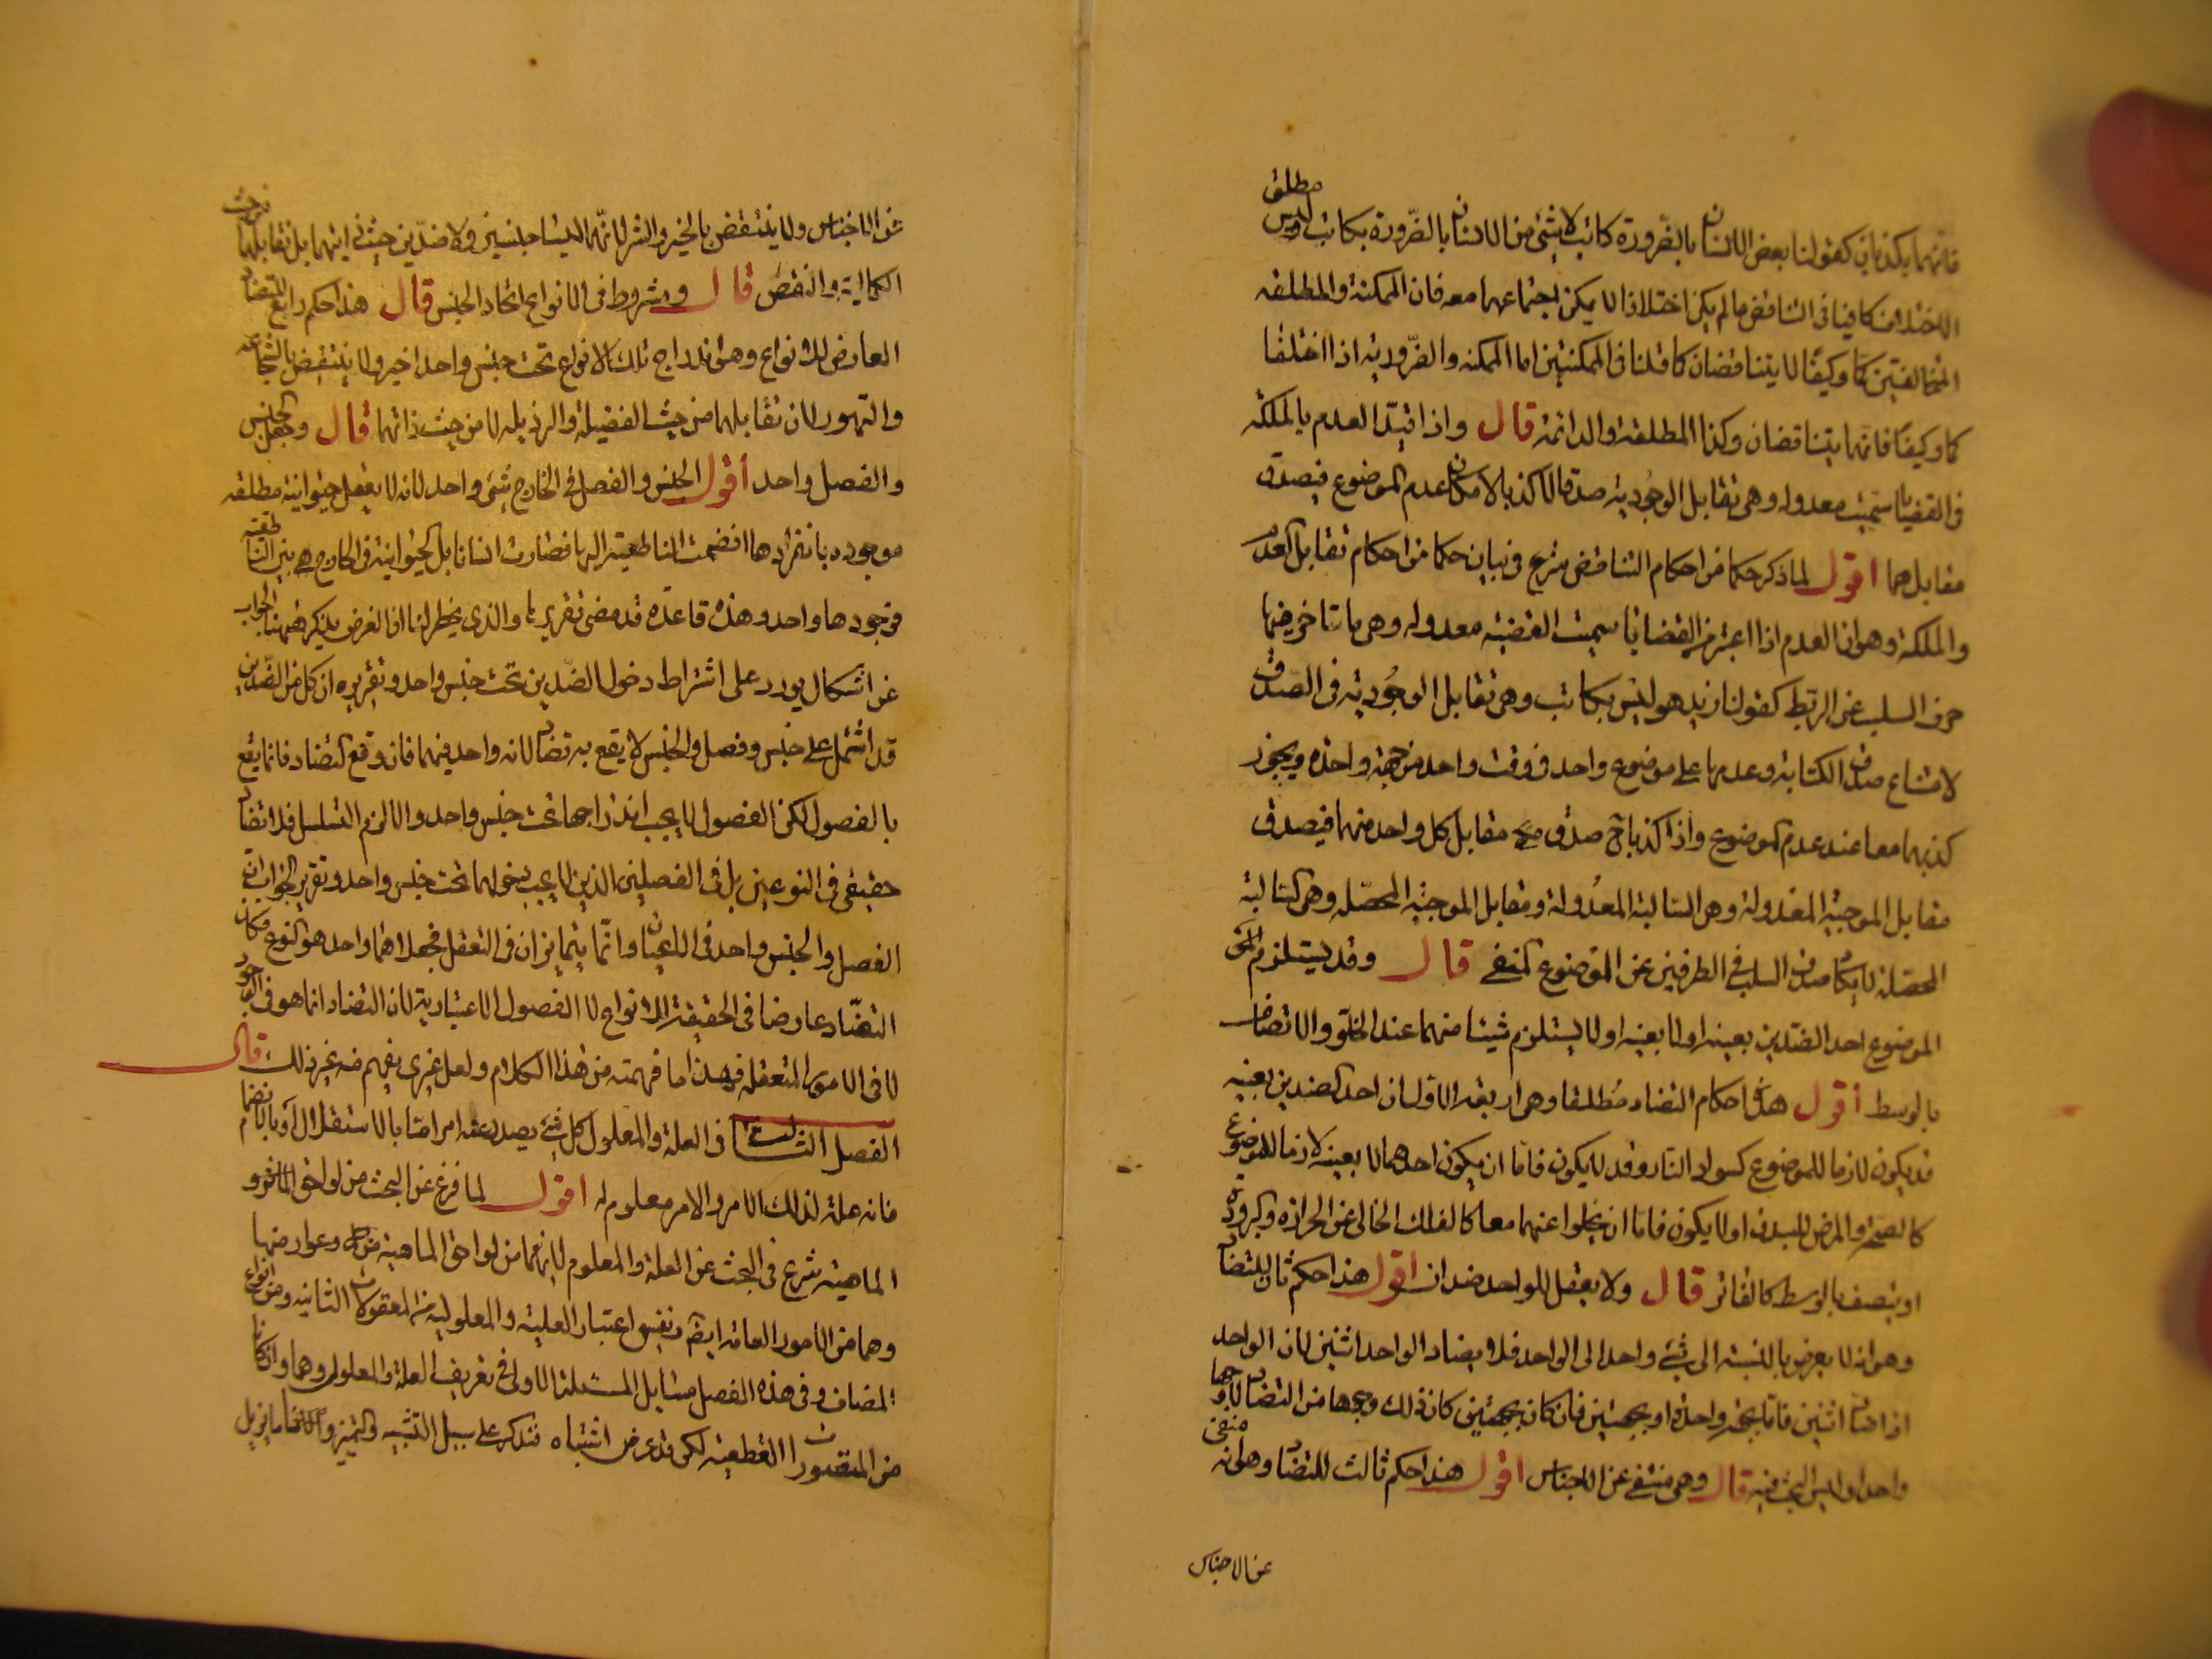 فانهما يكذبان كقولنا بعض الانسان بالضرورة كاتب لا شئ من الانسان بالضرورة بكاتب وليس مطلق
الاختلاف كافيا فى التناقض ما لم يكن اختلافا لا يمكن اجتماعهما معه فان الممكنة والمطلقه
المتخالفتين كما وكيفا لا يتناقضان كما قلنا فى الممكنتين اما الممكنه والضروريه اذا اختلفا
كما وكيفا فانهما يتناقضان وكذا المطلقة والدائمة قال واذا قيد العدم بالملكة
فى القضايا سميت معدوله وهى تقابل الوجودية صدقا لا كذبا لامكان عدم الموضوع فيصدق
مقابلهما اقول لما ذكر حكما من احكام التناقض شرع فى بيان حكم من احكام تقابل العدم
والملكة وهو ان العدم اذا اعتبر فى القضايا سميت القضيه معدوله وهى ما تتاخر فيها
حرف السلب عن الربط كقولنا زيد هو ليس بكاتب وهى تقابل الوجودية فى الصدق
لامتناع صدق الكتابة وعدمها على موضوع واحد فى وقت واحد من جهة واحده ويجوز
كذبهما معا عند عدم الموضوع واذا كذبا ح صدق مقابل كل واحد منهما فيصدق
مقابل الموجبة المعدولة وهى السالبة المعدولة ومقابل الموجبة المحصله وهى السالبة
المحصلة لامكان صدق السلب فى الطرفين عن الموضوع المنفى قال وقد يستلزم
الموضوع احد الضدين بعينه او لا بعينه او لا يستلزم شيئا منهما عند الخلو والاتصاف
بالوسط اقول هذه احكام التضاد مطلقا وهى اربعة الاول ان احد الضدين بعينه
قد يكون لازما للموضوع كسواد القار وقد لا يكون فاما ان يكون احدهما لا بعينه لازما للموضوع
كالصحة والمرض للبدن او لا يكون فاما ان يخلوا عنهما معا كالفلك الخالى عن الحرارة والبرودة
او يتصف بالوسط كالفاتر قال ولا يعقل للواحد ضدان اقول هذا حكم ثان للتضاد
وهو انه لا يعرض بالنسبة الى شئ واحد الا لواحد فلا يضاد الواحد اثنين لان الواحد
اذا ضاد اثنين فاما بجهة واحدة او بجهتين فان كان بجهتين كان ذلك وجوها من التضاد لا وجها
واحدا وليس البحث فيه قال وهو منتفى عن الاجناس اقول هذا حكم ثالث للتضاد وهو انه منفى
عن الاجناس
عن الاجناس ولا ينتقض بالخير والشر لانهما ليسا جنسين ولا ضدين من حيث ذاتيهما بل تقابلهما من حيث
الكمالية والنقص قال ومشروط فى الانواع اتحاد الجنس قال هذا حكم رابع للتضاد
العارض للانواع وهو اندراج تلك الانواع تحت جنس واحد اخير ولا ينتقض بالشجاعة
والتهور لان تقابلهما من حيث الفضيلة والرذيله لا من حيث ذاتهما قال وجعل الجنس
والفصل واحد اقول الجنس والفصل فى الخارج شئ واحد لانه لا يعقل حيوانية مطلقه
موجوده بانفرادها انضمت الناطقية اليها فصارت انسانا بل الحيوانية فى الخارج هى بعينها الناطقية
فوجودها واحد وهذه قاعدة قد مضى تقريرها والذى يخطر لنا ان الغرض بذكرها هنا الجواب
عن اشكال يورد على اشتراط دخول الضدين تحت جنس واحد وتقريره ان كل من الضدين
قد اشتمل على جنس وفصل والجنس لا يقع به تضاد لانه واحد فيهما فان وقع التضاد فانما يقع
بالفصول لكن الفصول لا يجب اندراجها تحت جنس واحد والا لزم التسلسل فلا تضاد
حقيقى فى النوعين بل فى الفصلين الذين لا يجب دخولهما تحت جنس واحد وتقرير الجواب ان
الفصل والجنس واحد فى الاعيان وانما يتمايزان فى التعقل فجعلاهما واحد هو النوع فكان
التضاد عارضا فى الحقيقة للانواع لا الفصول الاعتبارية لان التضاد انما هو فى الوجود
لا فى الامور المتعقله فهذا ما فهمته من هذا الكلام ولعل غيرى يفهم منه غير ذلك قال
الفصل الثالث فى العلة والمعلول كل شئ يصدر عنه امر اما بالاستقلال او بالانضمام
فانه علة لذلك الامر والامر معلول له اقول لما فرغ عن البحث من لواحق
الماهية شرع فى البحث عن العلة والمعلول لانهما من لواحق الماهية وعوارضها
وهما من الامور العامة ايضا ونفس اعتبار العلية والمعلولية من المعقولات الثانيه ومن انواع
المضاف وفى هذه الفصل مسايل المسئلة الاولى فى تعريف العلة والمعلول وهما وان كانا
من المتصورات القطعية لكن قد يعرض اشتباه فنذكر على سبيل التنبيه والتمييز ما يزيل